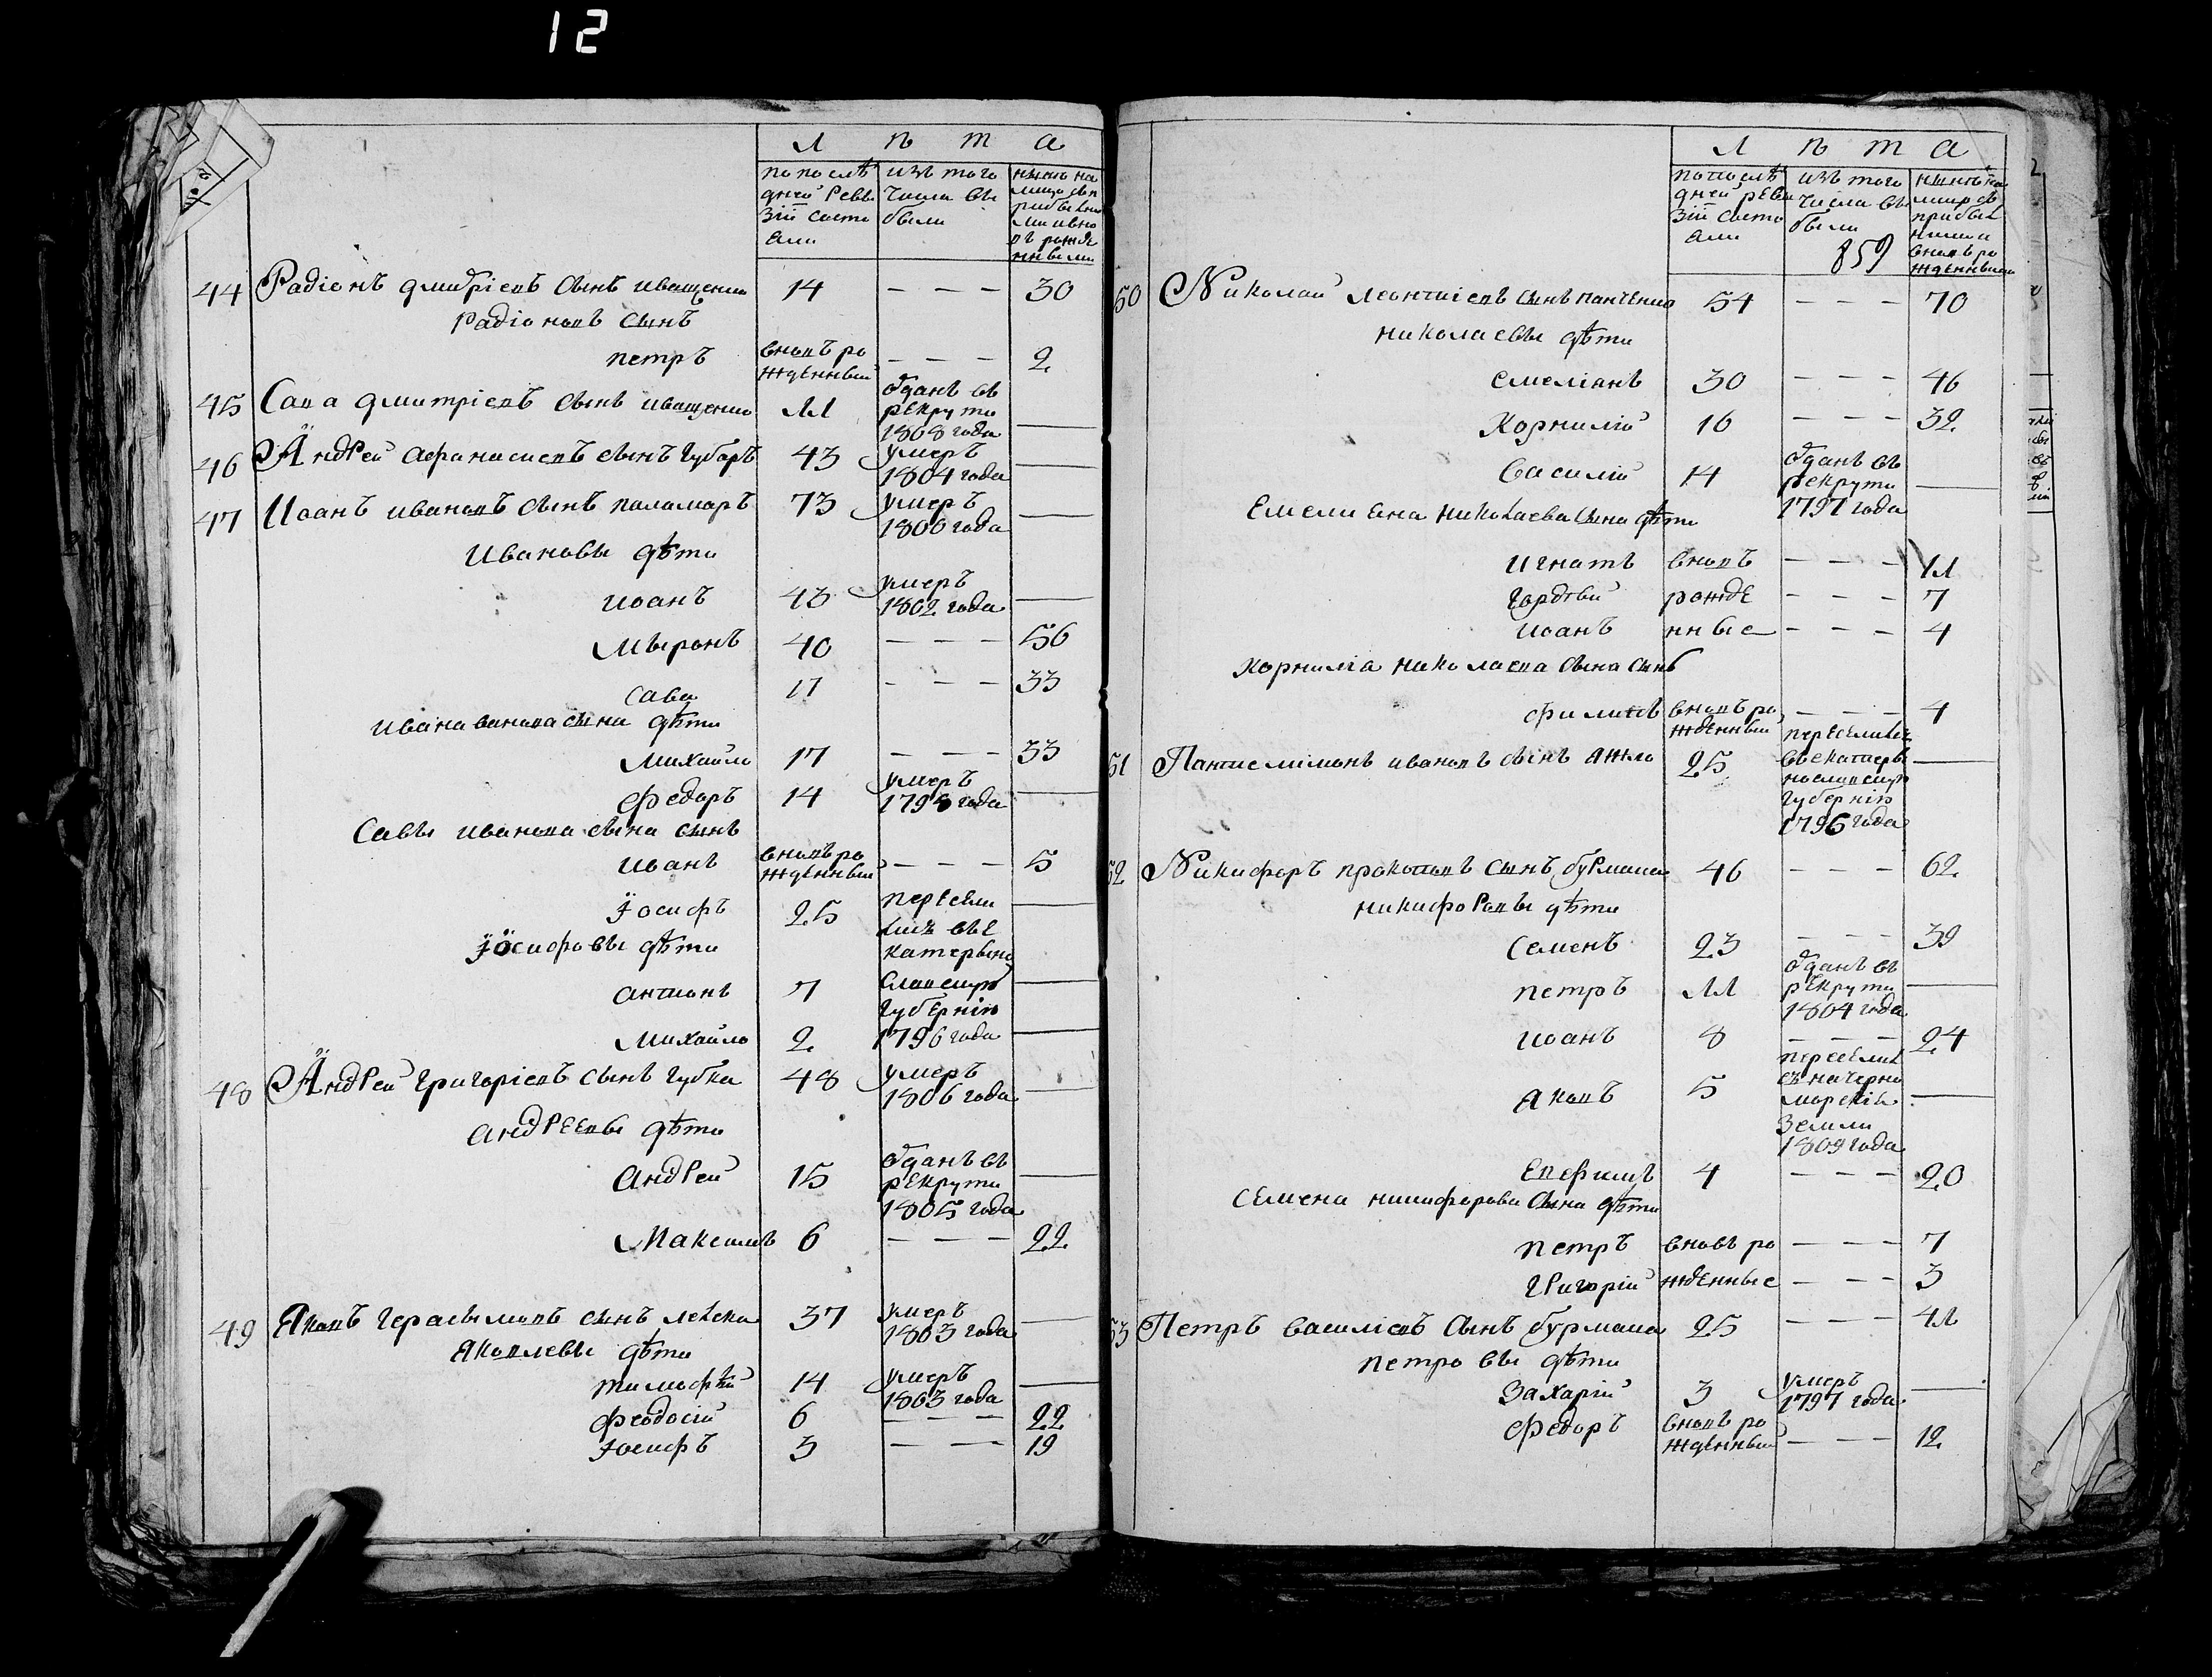 12
Л ѣ т а
по послѣ
дней Реви
зіи состо
яли
изъ того
числа вы
были
нынѣ на
лицо съ п
рибылы
ми и вно
въ рожде
нными
44 Радіонъ дмитріевъ сынъ иващенко 14 — — — 30
Радіоновъ сынъ
петръ вновъ ро
жденный — — — 2
45 Сава дмитріевъ сынъ иващенко 11 отданъ въ
рекруты
1808 года —
46 Андрей афанасиевъ сынъ губарь 43 умеръ
1804 года —
47 Иоанъ ивановъ сынъ паламарь 73 умеръ
1800 года —
Ивановы дѣти
иоанъ 43 умеръ
1802 года —
Мыронъ 40 — — — 56
Сава 17 — — — 33
ивана иванова сына дѣти
Михайло 17 — — — 33
Федоръ 14 умеръ
1798 года —
Савы иванова сына сынъ
иванъ вновъ ро
жденный — — — 5
Іосифъ 25 пересели
лись въ е
катерино
славскую
губернію
1796 года —
Іосифовы дѣти
антонъ 7 —
Михайло 2 —
48 Андрей григоріевъ сынъ губка 48 умеръ
1806 года —
андреевы дѣти
андрей 15 отданъ въ
рекруты
1805 года —
Максимъ 6 — — — 22
49 Яковъ герасымовъ сынъ 37 умеръ
1803 года —
Яковлевы дѣти
тимофѣй 14 умеръ
1803 года —
феодосій 6 — — — 22
Іосифъ 3 — — — 19
Л ѣ т а
по послѣ
дней реви
зіи состо
яли
изъ того
числа вы
были
859
нынѣ на
лицо съ
прибыл
ными и
вновъ ро
жденными
50 Николай леонтиевъ сынъ панченко 54 — — — 70
николаевы дѣти
емеліанъ 30 — — — 46
Корнилій 16 — — — 32
Василій 14 отданъ въ
рекруты
1797 года —
Емелияна николаева сына дѣти
игнатъ вновъ — — — 11
Гордѣй рожде — — — 7
иоанъ нные — — — 4
Корниліа николаева сына сынъ
филипъ вновъ ро
жденный — — — 4
51 Пантелимонъ ивановъ сынъ яжло 25 переселився
въ екатери
нославскую
губернію
1796 года —
52 Никифоръ прокоповъ сынъ бурмака 46 — — — 62
никифоровы дѣти
Семенъ 23 — — — 39
петръ 11 отданъ въ
рекруты
1804 года —
иоанъ 8 — — — 24
яковъ 5 переселил
сь на черно
морскія
земли
1809 года —
Евфимъ 4 — — — 20
Семена никифорова сына дѣти
петръ вновъ ро — — — 7
григорій жденные — — — 3
53 Петръ василіевъ сынъ бурмака 25 — — — 41
петровы дѣти
Захарій 3 умеръ
1797 года —
Федоръ вновъ ро
жденный — — — 12